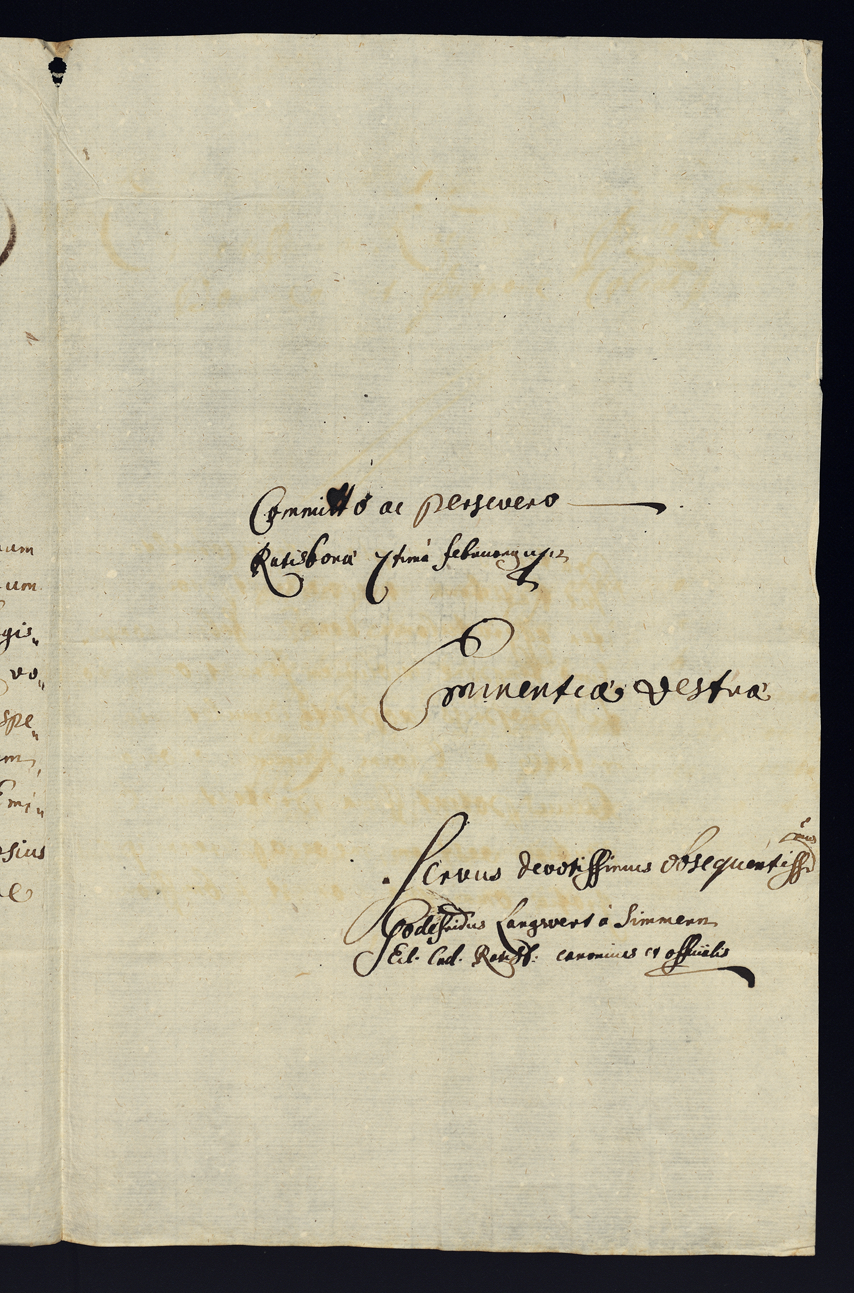 um
um
gis„
vo„
spe„
m,
Emi„
osius
e
Committo ac persevero
Ratisbonæ 7timâ february
Eminentiæ Vestræ
Servus devotissimus obsequentissimus
Godefridus Langwert à Simmern
Cad. Ratisb: canonicus et officialis